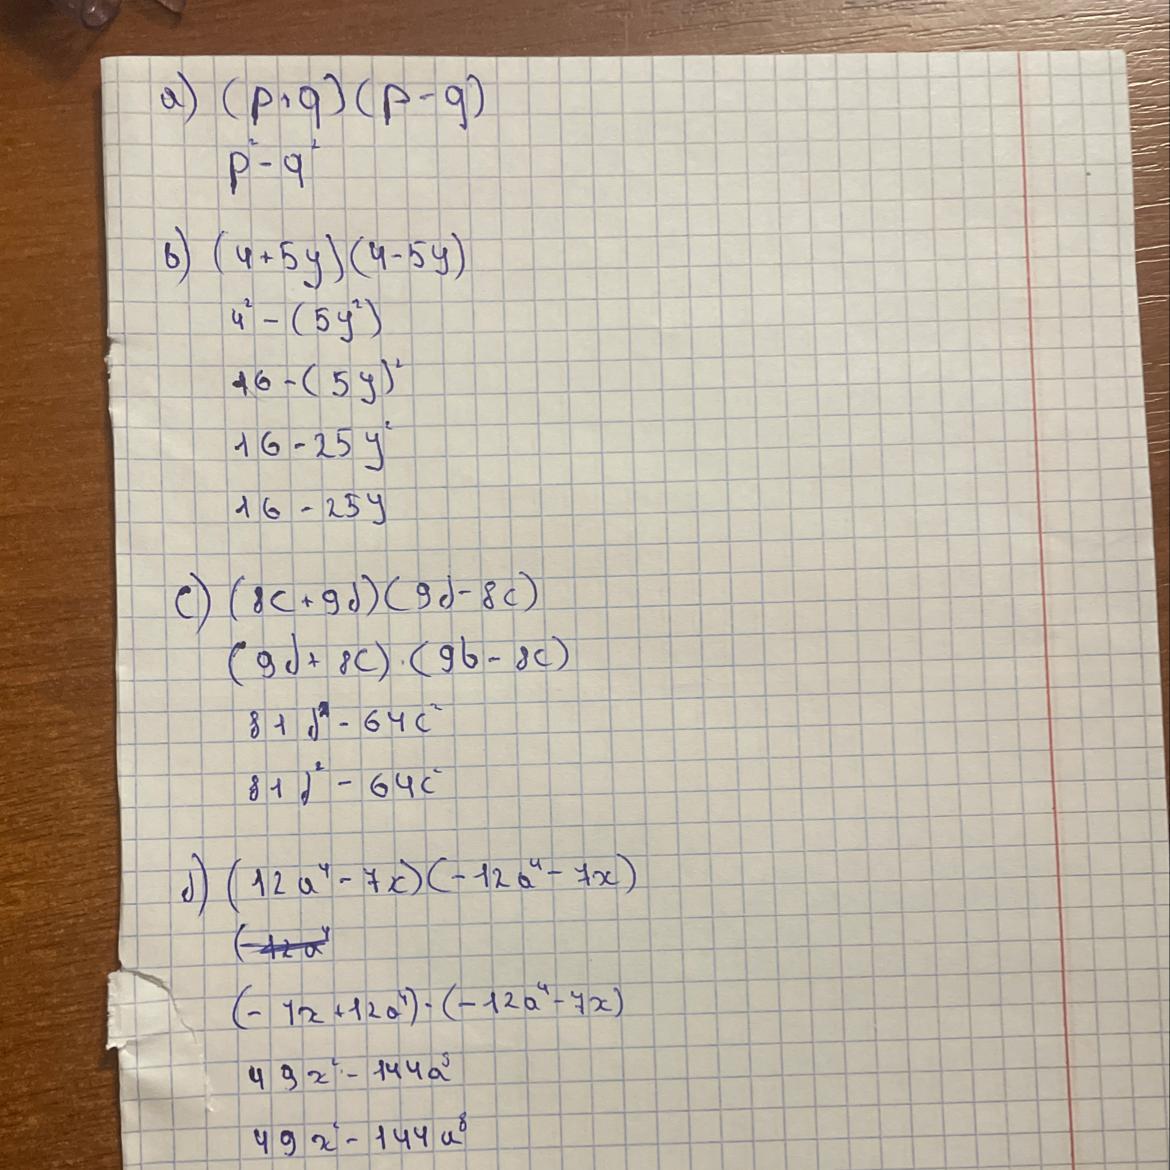 a) (p+q)(p-q)
p²-q²
b) (4+5y)(4-5y)
4²-(5y²)
16-(5y)²
16-25y²
16-25y
c) (8c+9d)(9d-8c)
(9d+8c)·(9b-8c)
81d²-64c²
81d²-64c²
d) (12a⁴-7x)(-12a⁴-7x)
(-12a⁴
(-7x+12a⁴)·(-12a⁴-7x)
49x²-144a⁸
49x²-144a⁸